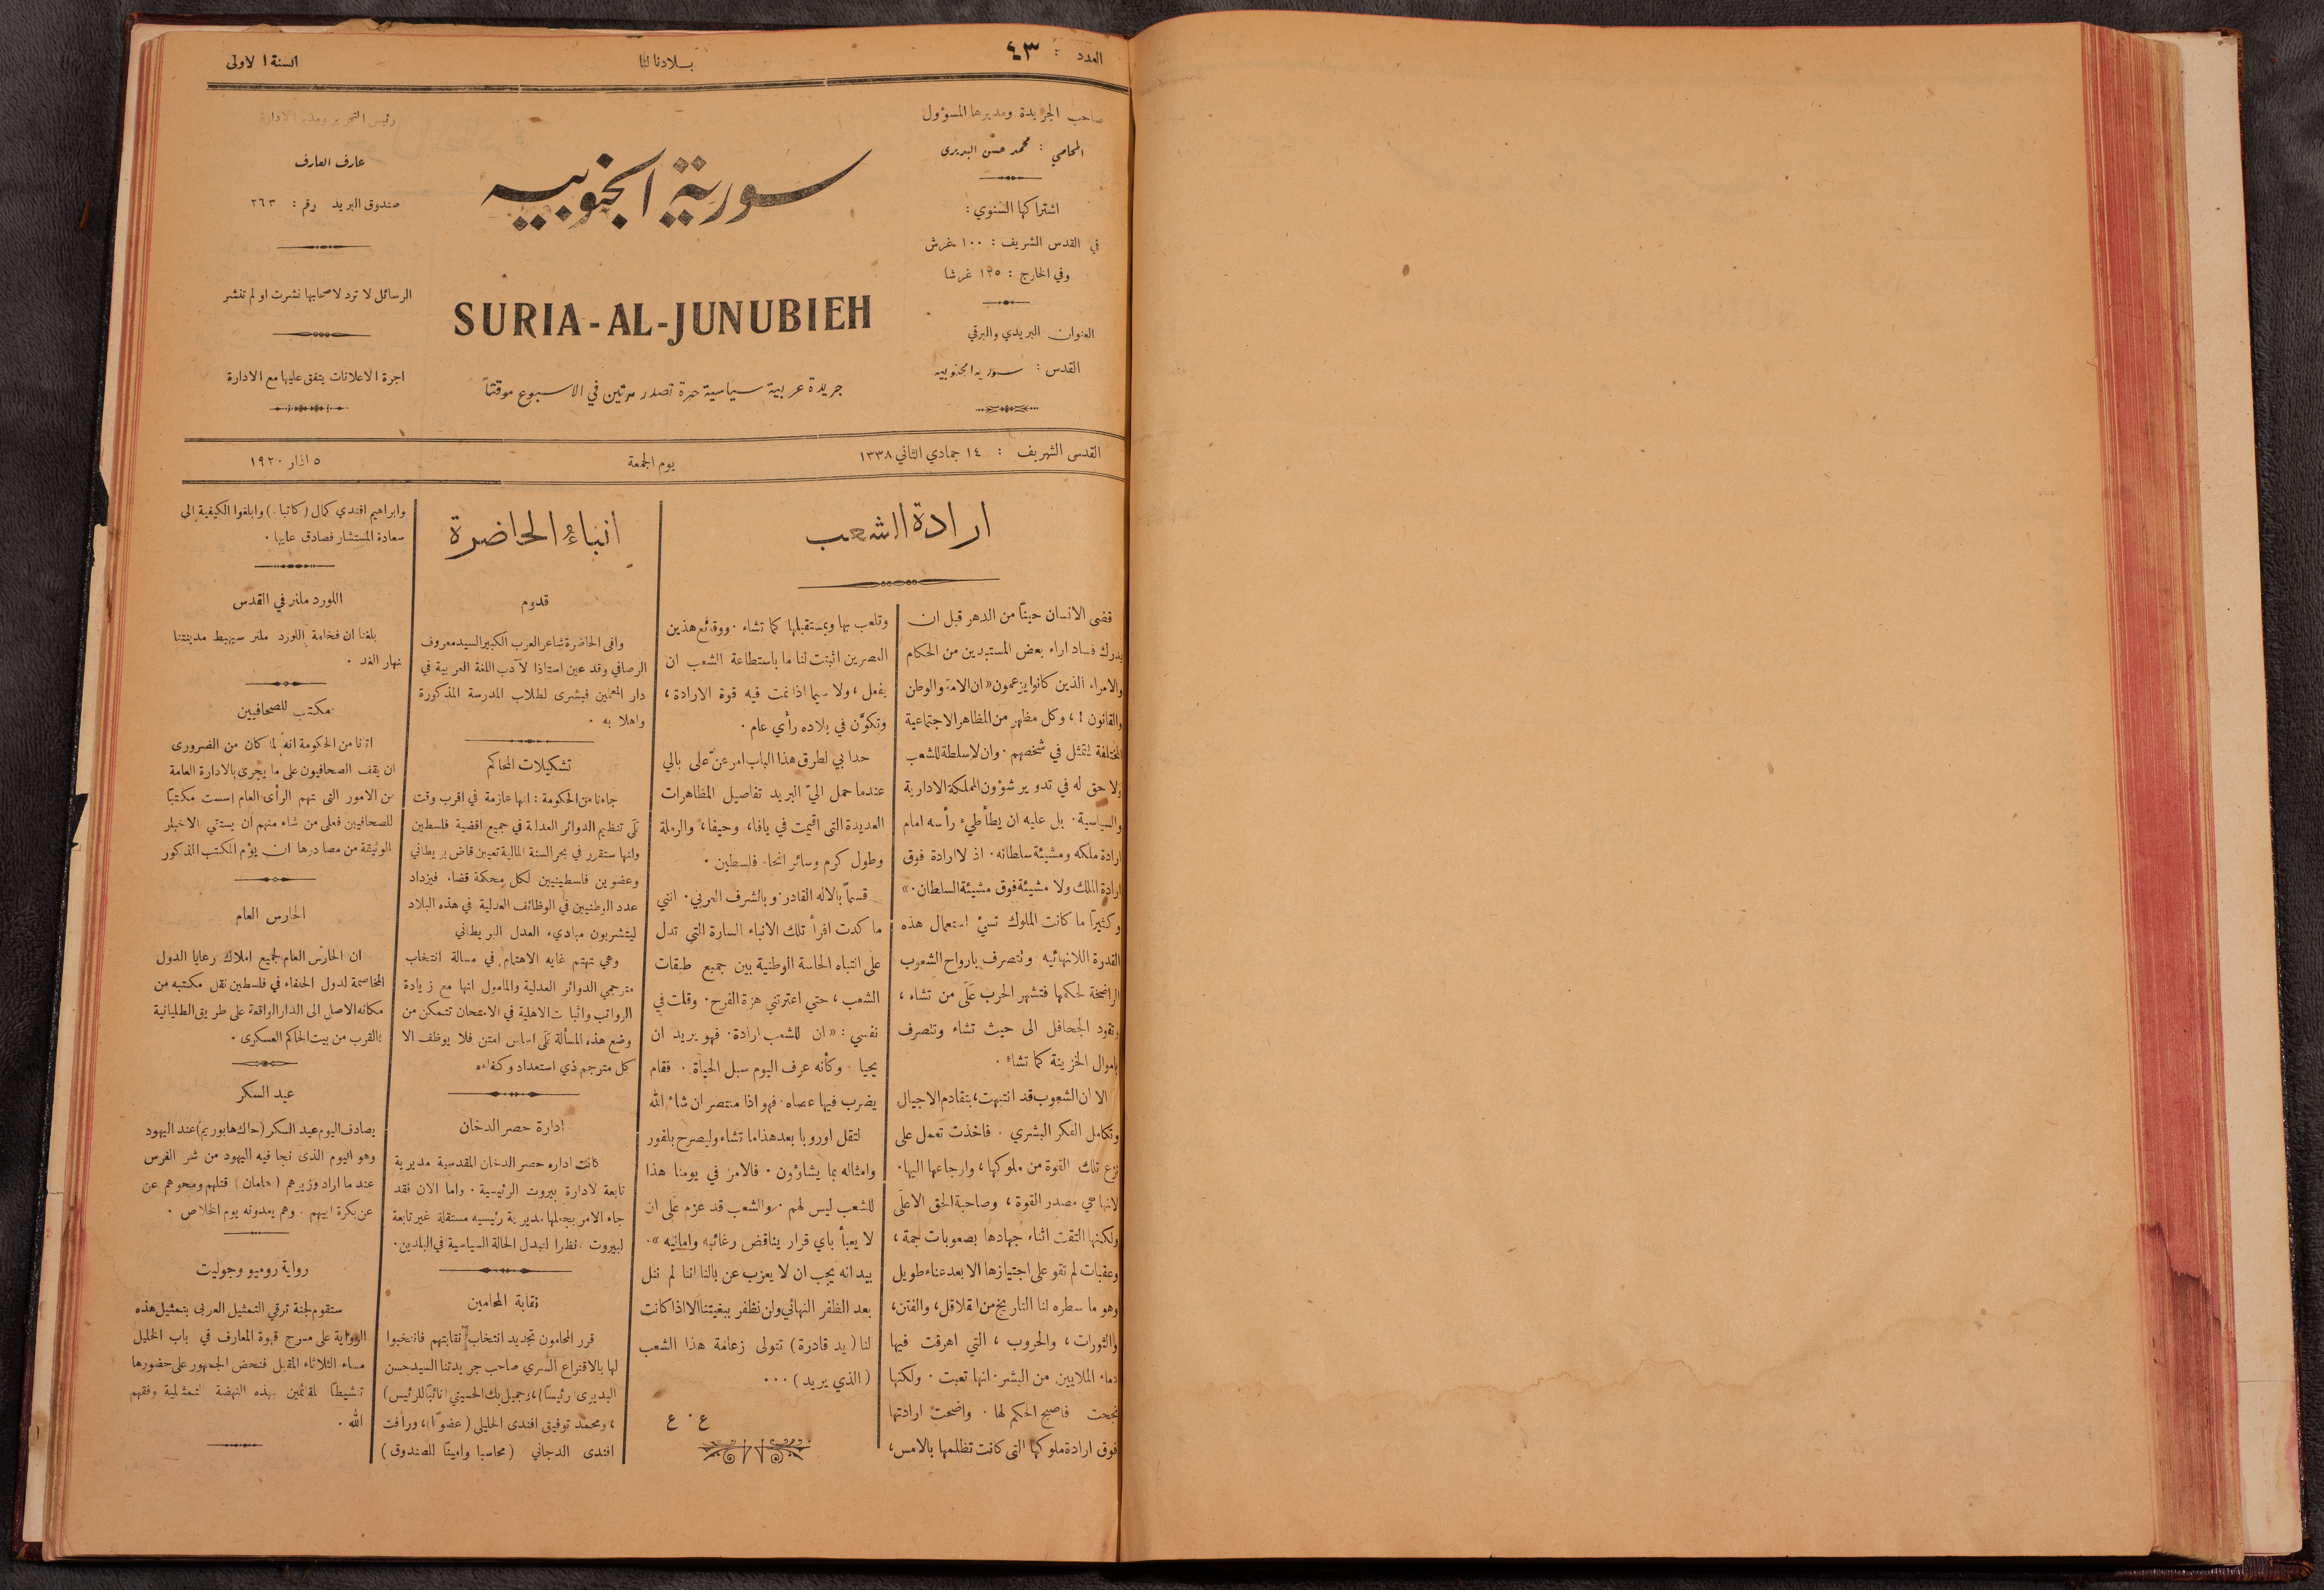 العدد : ٤٣
بلادنا لنا
السنة الاولى
صاحب الجريدة ومديرها المسؤول
المحامي : محمد حسن البديري
اشتراكها السنوي :
في القدس الشريف : ١٠٠ غرش
وفي الخارج : ١٢٥ غرشا
العنوان البريدي والبرقي
القدس : سورية الجنوبية
سورية الجنوبية
SURIA-AL-JUNUBIEH
جريدة عربية سياسية حرة تصدر مرتين في الاسبوع موقتاً
رئيس التحرير ومدير الادارة
عارف العارف
صندوق البريد رقم : ٢٦٣
الرسائل لا ترد لاصحابها نشرت او لم تنشر
اجرة الاعلانات يتفق عليها مع الادارة
القدس الشريف : ١٤ جمادي الثاني ١٣٣٨
يوم الجمعة
٥ اذار ١٩٢٠
ارادة الشعب
قضى الانسان حيناً من الدهر قبل ان
يدرك فساد اراء بعض المستبدين من الحكام
والامراء الذين كانوا يزعمون « ان الامة والوطن
والقانون ! ، وكل مظهر من المظاهر الاجتماعية
المختلفة يتمثل في شخصهم . وان لا سلطة للشعب
ولا حق له في تدوير شؤون المملكة الادارية
والسياسية . بل عليه ان يطأطيء رأسه امام
ارادة ملكه ومشيئة سلطانه . اذ لا ارادة فوق
ارادة الملك ولا مشيئة فوق مشيئة السلطان . »
وكثيراً ما كانت الملوك تسيئ استعمال هذه
القدرة اللانهائيه وتتصرف بارواح الشعوب
الراضخة لحكمها فتشهر الحرب عَلَى من تشاء ،
وتقود الجحافل الى حيث تشاء وتتصرف
باموال الخزينة كما تشاء .
الا ان الشعوب قد انتبهت ، بتقادم الاجيال
وتكامل الفكر البشري . فاخذت تعمل على
نزع تلك القوة من ملوكها ، وارجاعها اليها .
لانها هي مصدر القوة ، وصاحبة الحق الاعلَى
ولكنها التقت اثناء جهادها بصعوبات جمة ،
وعقبات لم تقو على اجتيازها الا بعد عناء طويل
وهو ما سطره لنا التاريخ من القلاقل ، والفتن ،
والثورات ، والحروب ، التي اهرقت فيها
دماء الملايين من البشر . انها تعبت . ولكنها
نجحت فاصبح الحكم لها . واضحت ارادتها
فوق ارادة ملوكها التى كانت تظلمها بالامس ،
وتلعب بها وبمستقبلها كما تشاء . ووقائع هذين
العصرين اثبتت لنا ما باستطاعة الشعب ان
يفعل ، ولا سيما اذا نمت فيه قوة الارادة ،
وتكوَّن في بلاده رأي عام .
حدا بي لطرق هذا الباب امر عنّ على بالي
عندما حمل اليّ البريد تفاصيل المظاهرات
العديدة التى اقيمت في يافا ، وحيفا ، والرملة
وطول كرم وسائر انحاء فلسطين .
قسماً بالاله القادر . وبالشرف العربي . انني
ما كدت اقرأ تلك الانباء السارة التي تدل
على انتباه الحاسة الوطنية بين جميع طبقات
الشعب ، حتي اعترتني هزة الفرح . وقلت في
نفسي : « ان للشعب ارادة . فهو يريد ان
يحيا . وكأنه عرف اليوم سبل الحياة . فقام
يضرب فيها عصاه . فهو اذا منتصر ان شاء الله
لتقل اوروبا بعد هذا ما تشاء وليصرح بلفور
وامثاله بما يشاؤون . فالامر في يومنا هذا
للشعب ليس لهم . والشعب قد عزم عَلَى ان
لا يعبأ باي قرار يناقض رغائبه وامانيه » .
بيد انه يجب ان لا يعزب عن بالنا اننا لم ننل
بعد الظفر النهائي ولن نظفر ببغيتنا الا اذا كانت
لنا ( يد قادرة ) تتولى زعامة هذا الشعب
( الذي يريد ) . . .
ع . ع
انباء الحاضرة
قدوم
وافى الحاضرة شاعر العرب الكبير السيد معروف
الرصافي وقد عين استاذا لآدب اللغة العربية في
دار المعلمين فبشرى لطلاب المدرسة المذكورة
واهلا به .
تشكيلات المحاكم
جاءنا من الحكومة : انها عازمة في اقرب وقت
عَلَى تنظيم الدوائر العدلية في جميع اقضية فلسطين
وانها ستقرر في بحر السنة المالية تعيين قاض بريطاني
وعضوين فلسطينيين لكل محكمة قضاء فيزداد
عدد الوطنيين في الوظائف العدلية في هذه البلاد
ليتشربون مباديء العدل البريطاني
وهي تهتم غايه الاهتمام في مسالة انتخاب
مترجمي الدوائر العدلية والمامول انها مع زيادة
الرواتب واثبات الاهلية في الامتحان تتمكن من
وضع هذه المسألة عَلَى اساس امتن فلا يوظف الا
كل مترجم ذي استعداد وكفاءه
ادارة حصر الدخان
كانت اداره حصر الدخان المقدسية مديرية
تابعة لادارة بيروت الرئيسية . واما الان فقد
جاء الامر بجعلها مديرية رئيسيه مستقلة غير تابعة
لبيروت نظرا لتبدل الحالة السياسية في البلدين .
نقابة المحامين
قرر المحامون تجديد انتخاب نقابتهم فانتخبوا
لها بالاقتراع السري صاحب جريدتنا السيد حسن
البديرى ( رئيساً ) ، وجميل بك الحسيني ( نائباً للرئيس )
، ومحمد توفيق افندى الخليلي ( عضواً ) ، ورأفت
افندى الدجاني ( محاسبا وامينا للصندوق )
وابراهيم افندي كمال ( كاتبا ) وابلغوا الكيفية الى
سعادة المستشار فصادق عليها .
اللورد ملنر في القدس
بلغنا ان فخامة اللورد ملنر سيهبط مدينتنا
نهار الغد .
مكتب للصحافيين
اتانا من الحكومة انه لما كان من الضرورى
ان يقف الصحافيون على ما يجرى بالادارة العامة
من الامور التى تهم الرأى العام اسست مكتباً
للصحافيين فعلى من شاء منهم ان يستقي الاخبار
الوثيقة من مصادرها ان يؤم المكتب المذكور
الحارس العام
ان الحارس العام لجميع املاك رعايا الدول
المخاصمة لدول الحلفاء في فلسطين نقل مكتبه من
مكانه الاصل الى الدار الواقعة على طريق الطليانية
بالقرب من بيت الحاكم العسكرى .
عيد السكر
يصادف اليوم عيد السكر ( حاك هابوريم ) عند اليهود
وهو اليوم الذى نجا فيه اليهود من شر الفرس
عند ما اراد وزيرهم ( هامان ) قتلهم ومحوهم عن
عن بكرة ابيهم . وهم يعدونه يوم الخلاص .
رواية روميو وجوليت
ستقوم لجنة ترقي التمثيل العربى بتمثيل هذه
الرواية على مسرح قهوة المعارف في باب الخليل
مساء الثلاثاء المقبل فنحض الجمهور على حضورها
تنشيطاً لقائمين بهذه النهضة التمثلية وفقهم
الله .